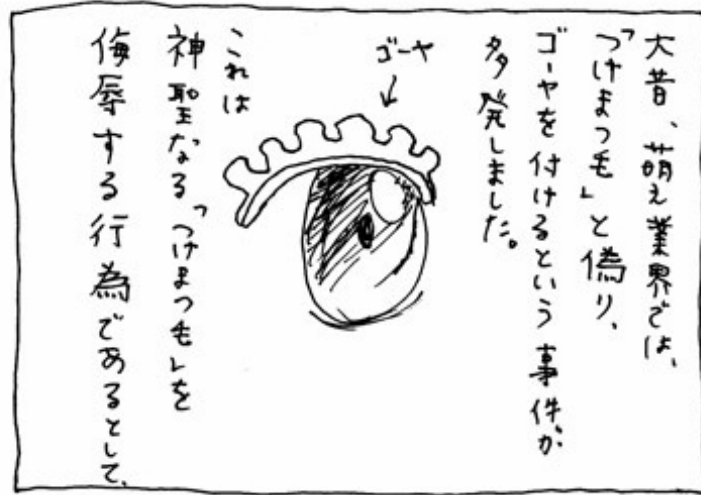 大昔、萌え業界では、
「つけまつ毛」と偽り、
ゴーヤを付けるという事件が
多発しました。
ゴーヤ
これは
神聖なる「つけまつ毛」を
侮辱する行為であるとして、